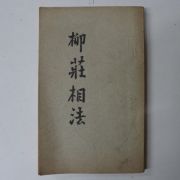 柳莊相法